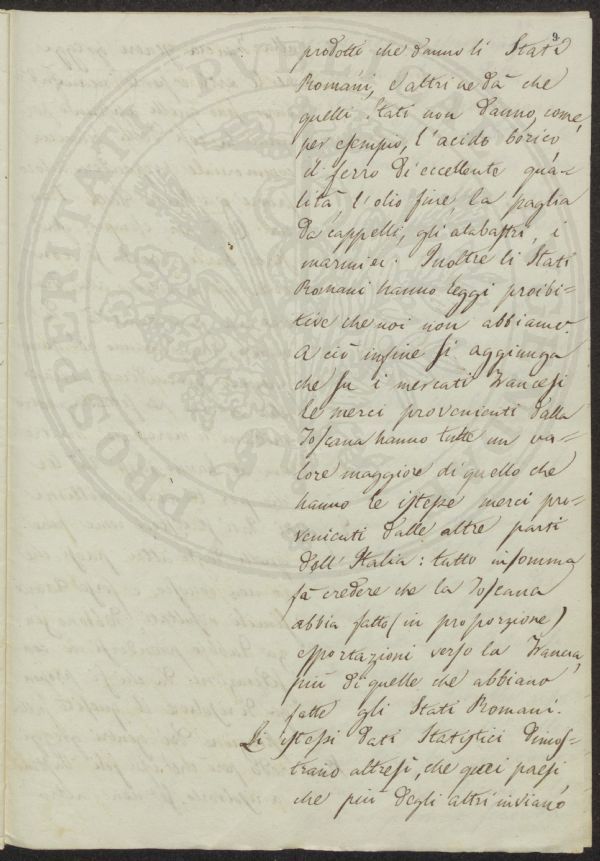 9
prodotti che danno li Stati
Romani, e altri ne dà che
quelli Stati non danno, come,
per esempio, l'acido borico,
il ferro di eccellente qua-
lità, l'olio fine, la paglia
da cappelli, gli alabastri, i
marmi ec: Inoltre li Stati
Romani hanno leggi proibi-
tive che noi non abbiamo.
A ciò infine si aggiunga
che su i mercati Francesi
le merci provenienti dalla
Toscana hanno tutte un va-
lore maggiore di quello che
hanno le istesse merci pro-
venienti dalle altre parti
dell'Italia: tutto insomma
fà credere che la Toscana
abbia fatto (in proporzione)
esportazioni verso la Francia,
più di quelle che abbiano
fatte gli Stati Romani.
Li istessi dati Statistici dimos-
trano altresì, che quei paesi
che più degli altri inviano
PROSPERITATI PUBLICAE